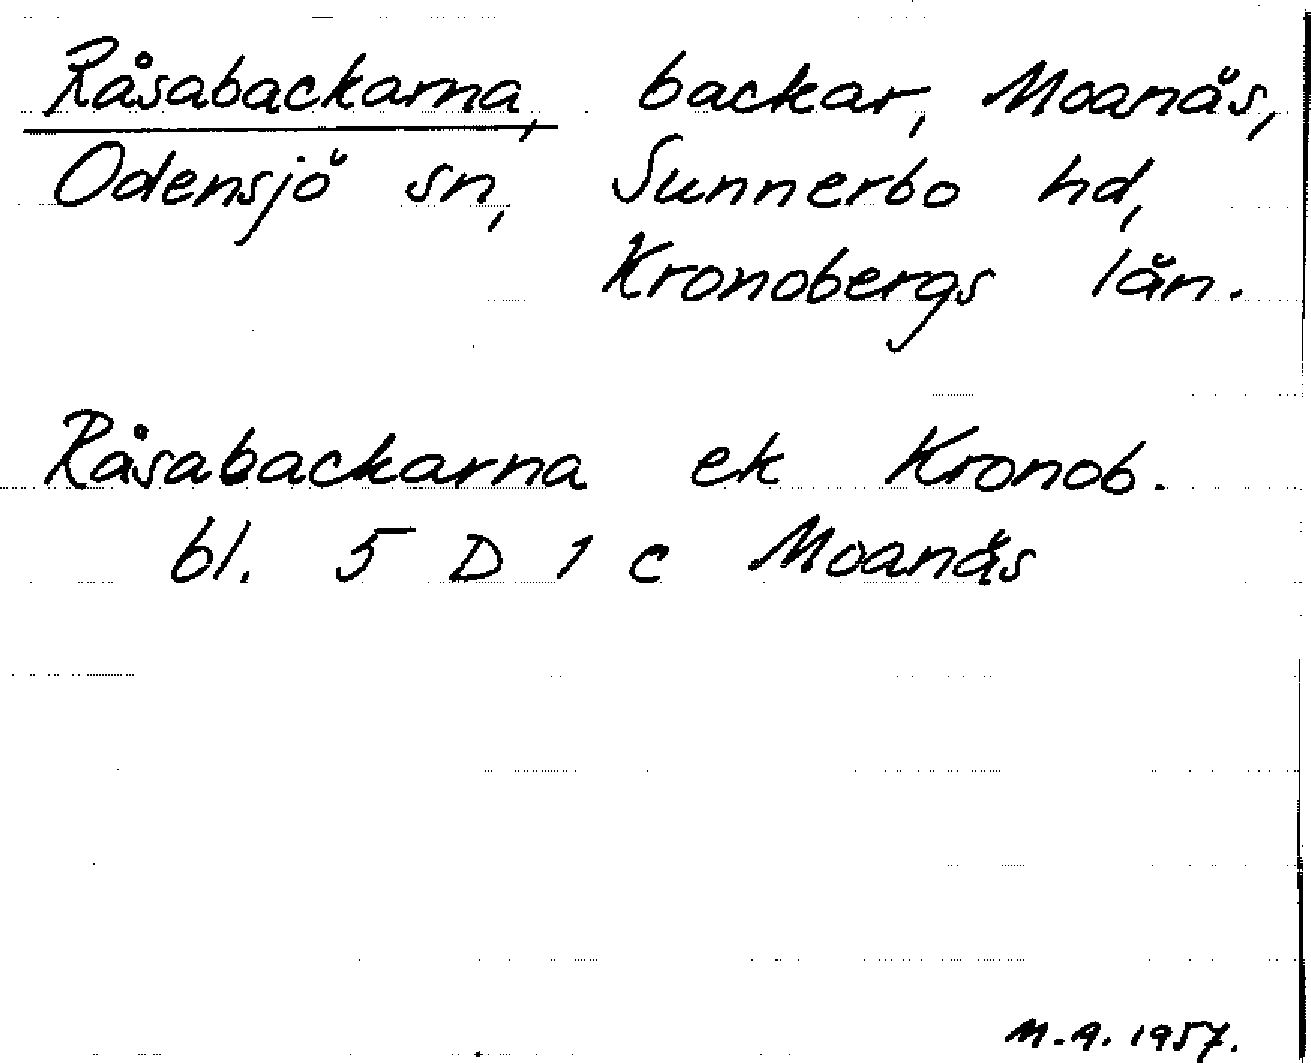 Råsabackarna, backar, Moanäs,
Odensjö sn, Sunnerbo hd,
Kronobergs län.
Råsabackarna ek Kronob.
bl. 5 D 1 c Moanäs
M.A. 1957.